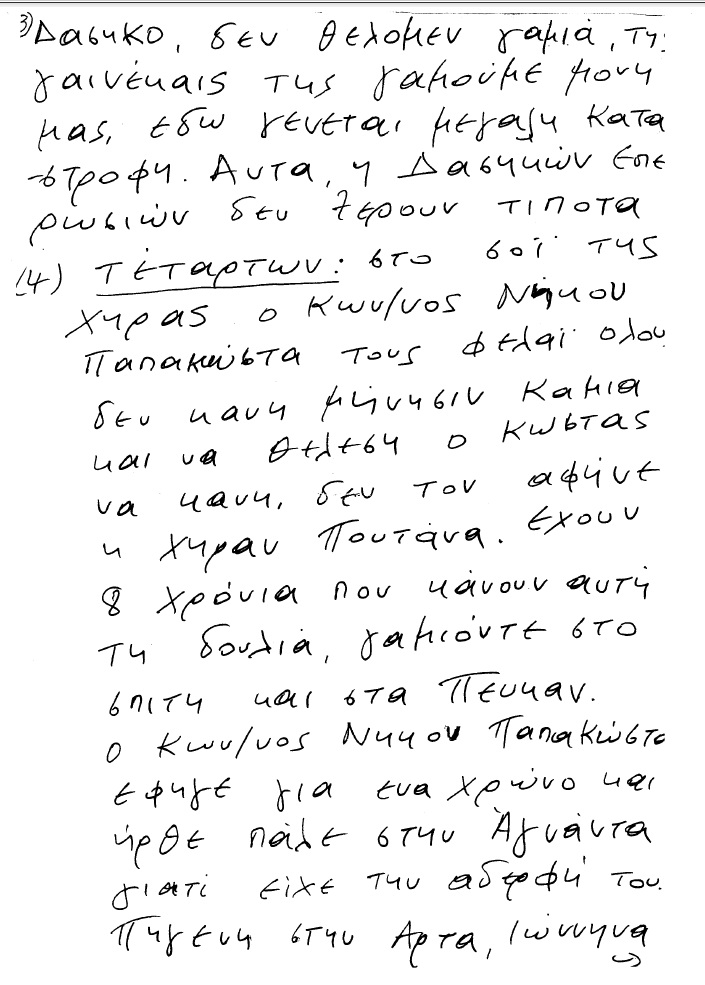 3) Δασηκο, δεν θελομεν γαμιά, τη
γαινέκαις της γαμούμε μονη
μας, εδω γένεται μεγαλη κατα
-στροφη. Αυτα, η Δασηκών Επε
ρωσιών δεν ξερουν τιποτα
(4) Τέταρτων: στο σοϊ της
χηρας ο Κων/νος Νηκου
Παπακώστα τους φελαϊ ολου
δεν κανη μήνησιν Καμια
και να θελεση ο Κωστας
να κανη, δεν τον αφήνε
η χηραν Πουτάνα. Εχουν
8 χρόνια που κάνουν αυτή
τη δουλιά, γαμιόντε στο
σπιτη και στα Πευκαν.
ο Κων/νος Νηκου Παπακώστα
εφηγε για ενα χρώνο και
ήρθε πάλε στην Άγνάντα
γιατί είχε την αδερφή του.
Πηγενη στην Αρτα, Ιώννηνα